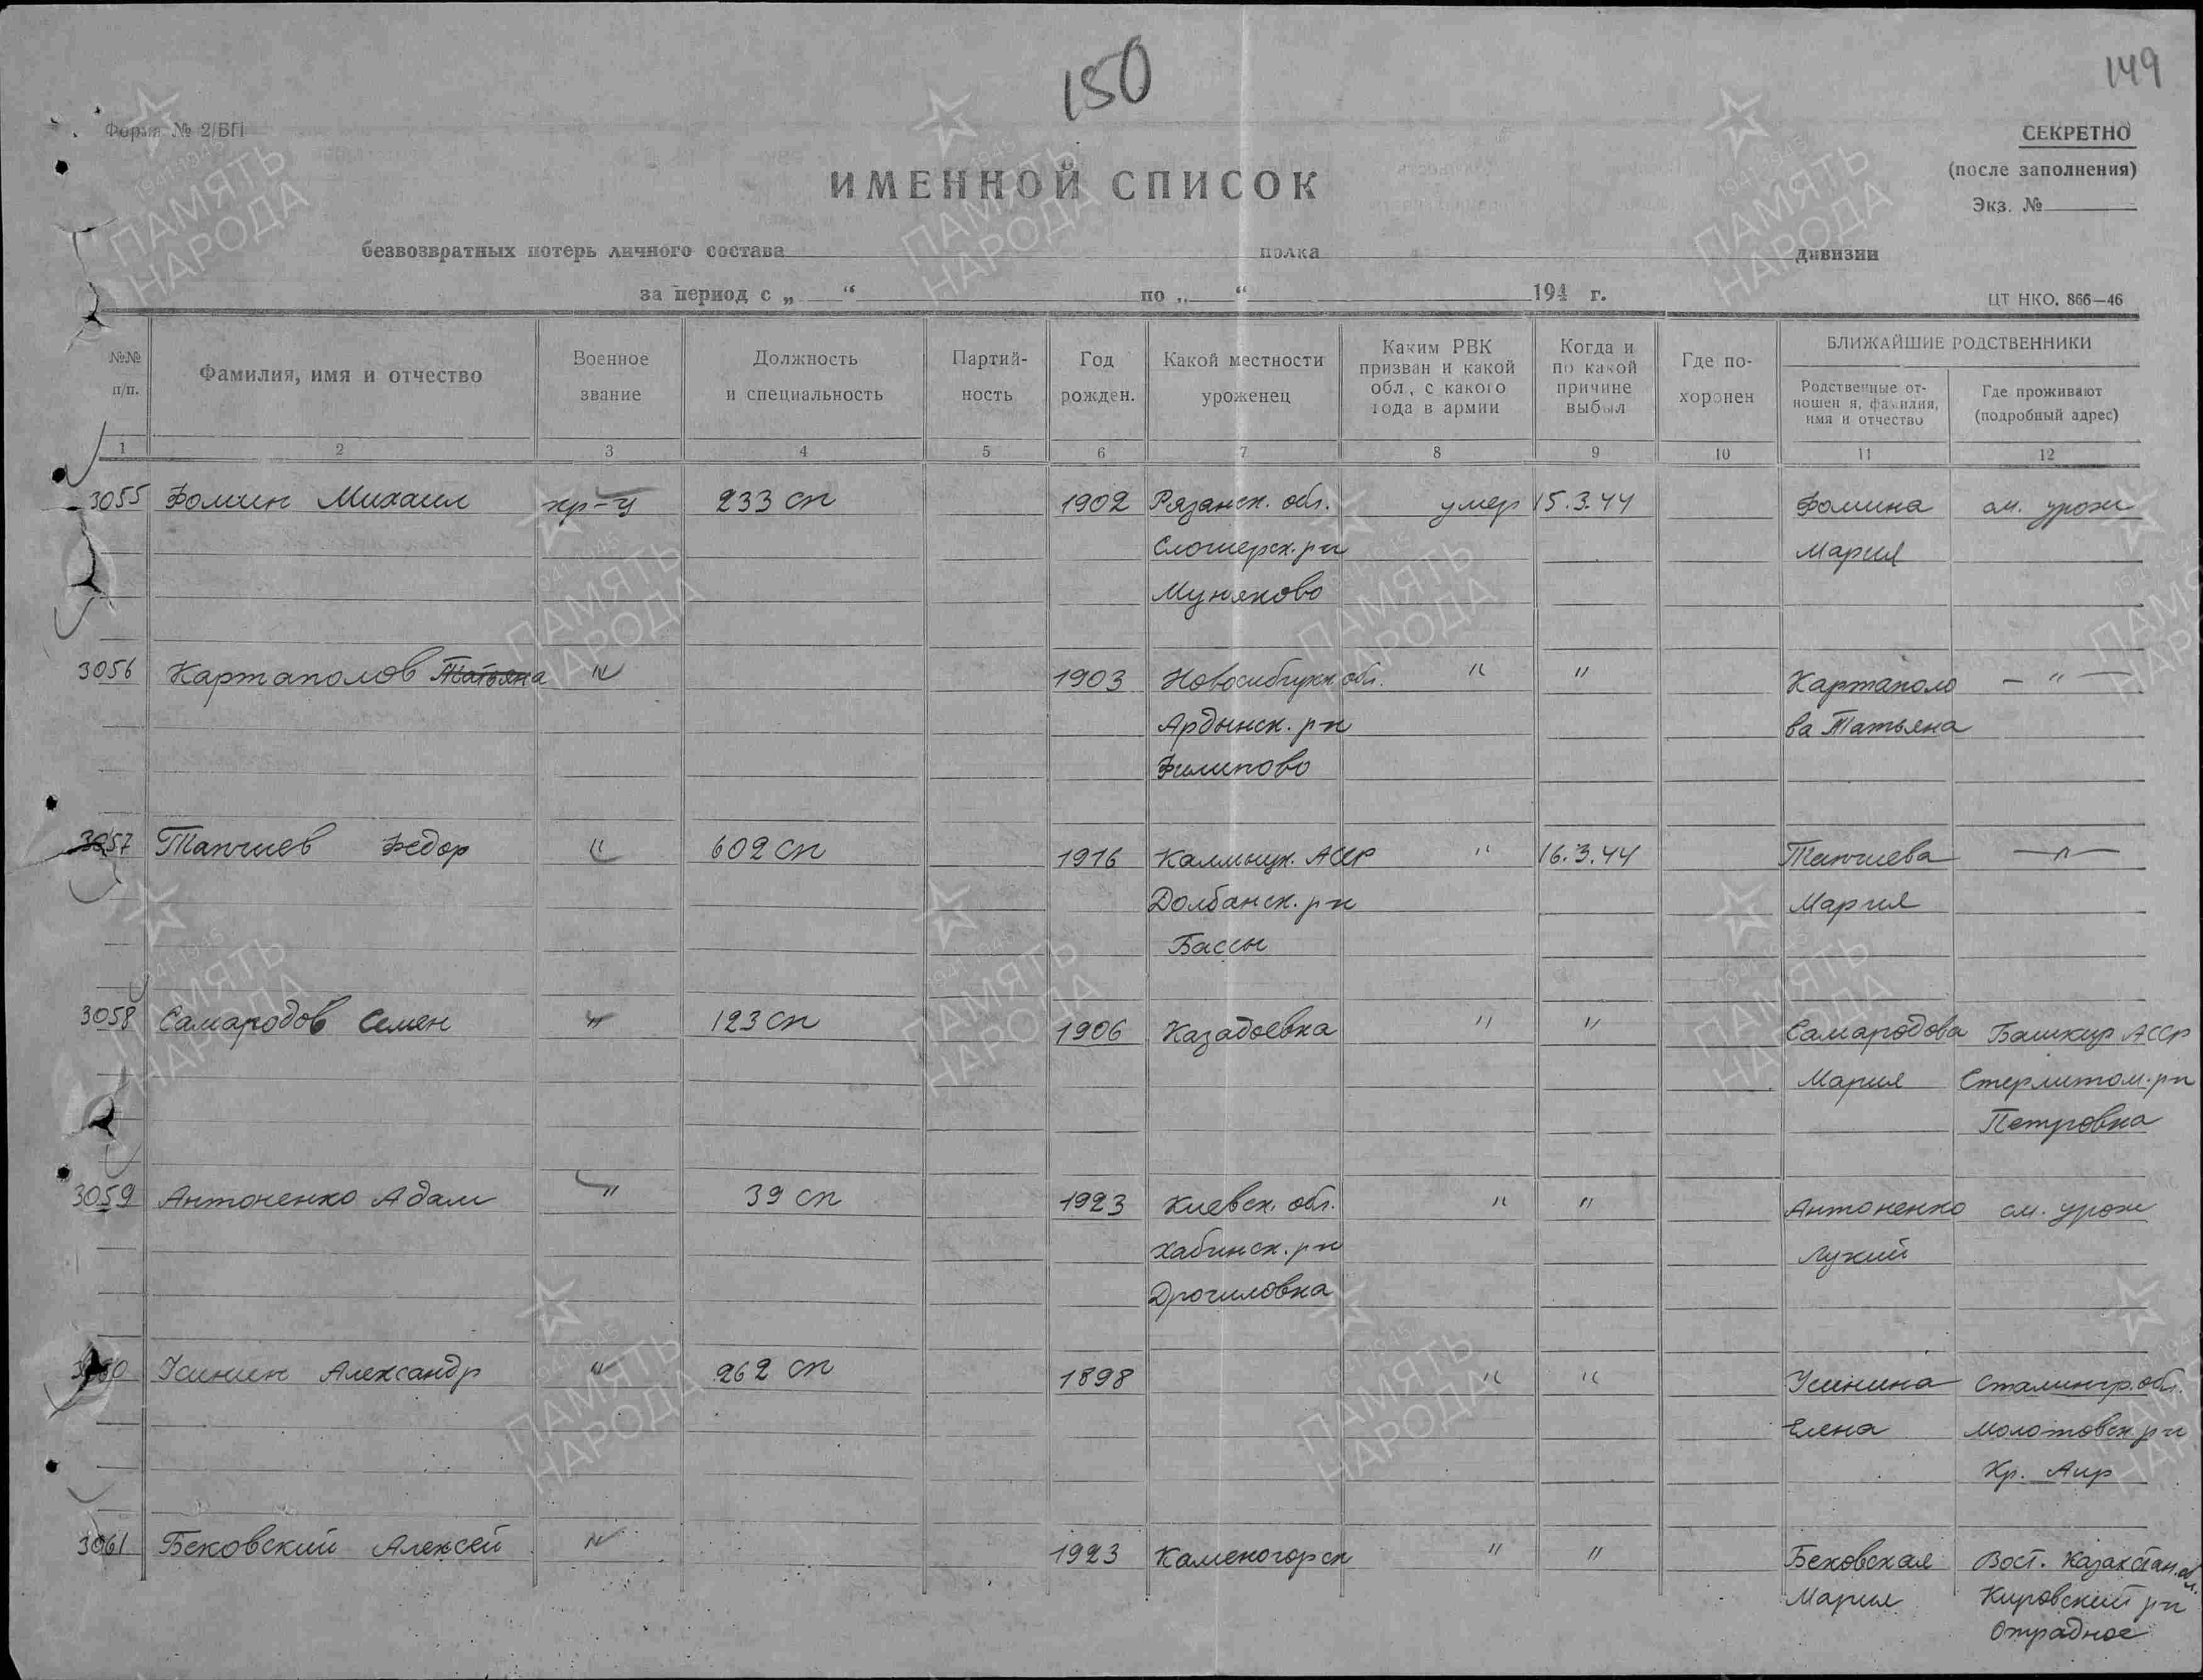 150
149
Форма № 2/БП
СЕКРЕТНО
(после заполнения)
Экз. №
ИМЕННОЙ СПИСОК
безвозвратных потерь личного состава полка дивизии
за период с „ “ по „ “ 194 г.
ЦТ НКО. 866—46
№№ п/п.
Фамилия, имя и отчество
Военное звание
Должность и специальность
Партий-ность
Год рожден.
Какой местности уроженец
Каким РВК призван и какой обл., с какого года в армии
Когда и по какой причине выбыл
Где по-хоронен
БЛИЖАЙШИЕ РОДСТВЕННИКИ
Родственные от-ношен я, фамилия, имя и отчество
Где проживают (подробный адрес)
1 2 3 4 5 6 7 8 9 10 11 12
3055 Фомин Михаил кр-ц 233 сп 1902 Рязанск. обл. умер 15.3.44 Фомина см. урож
р-н Мария
Муняково
3056 Картаполов Татьяна " 1903 Новосибирск. обл. " " Картаполо — " —
Ардынск. р-н ва Татьяна
Филипово
3057 Тапчиев Федор " 602 сп 1916 Калмыцк. АССР " 16.3.44 Тапчиева — " —
Долбанск. р-н Мария
Бассы
3058 Самародов Семен " 123 сп 1906 Казадоевка " " Самародова Башкир АССР
Мария Стерлитом. р-н
Петровка
3059 Антоненко Адам " 39 сп 1923 Киевск. обл. " " Антоненко см. урож
Хабинск. р-н Лукий
Дрочиловка
3060 Усинин Александр " 262 сп 1898 " " Усинина Сталингр. обл.
Елена Молотовск. р-н
Кр. Яир
3061 Бековский Алексей " 1923 Каменогорск " " Бековская Вост. Казахстан. обл.
Мария Кировский р-н
Отрадное
1941-1945
ПАМЯТЬ
НАРОДА